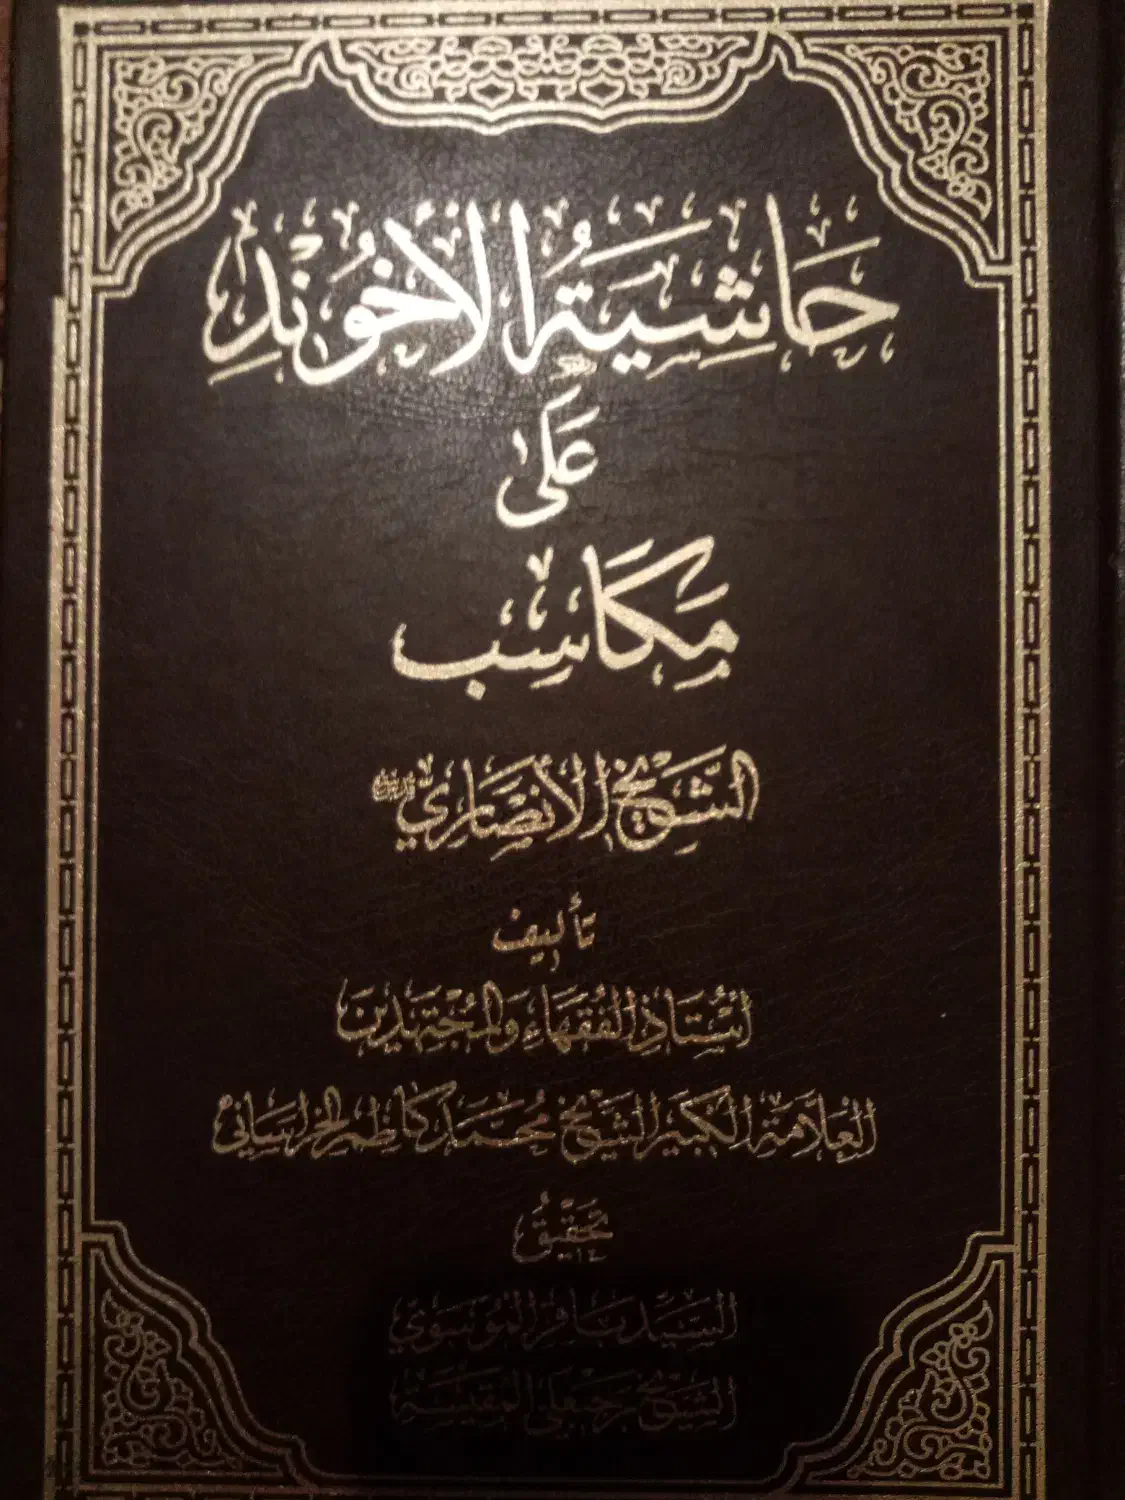 حَاشِيَةُ الاخُوندِ
عَلَى
مَكَاسِب
الشَّيخِ الأنصَارِي
تأليف
اُستَاذِ الفُقَهَاءِ وَالمُجتَهِدِينَ
العَلاَّمَة الكَبِير الشَّيخ مُحَمَّد كَاظِم الخُرَاسَانِي
تَحقِيقُ
السَّيِّد بَاقِر المُوسَوِي
الشَّيخ رَجَبعَلِي